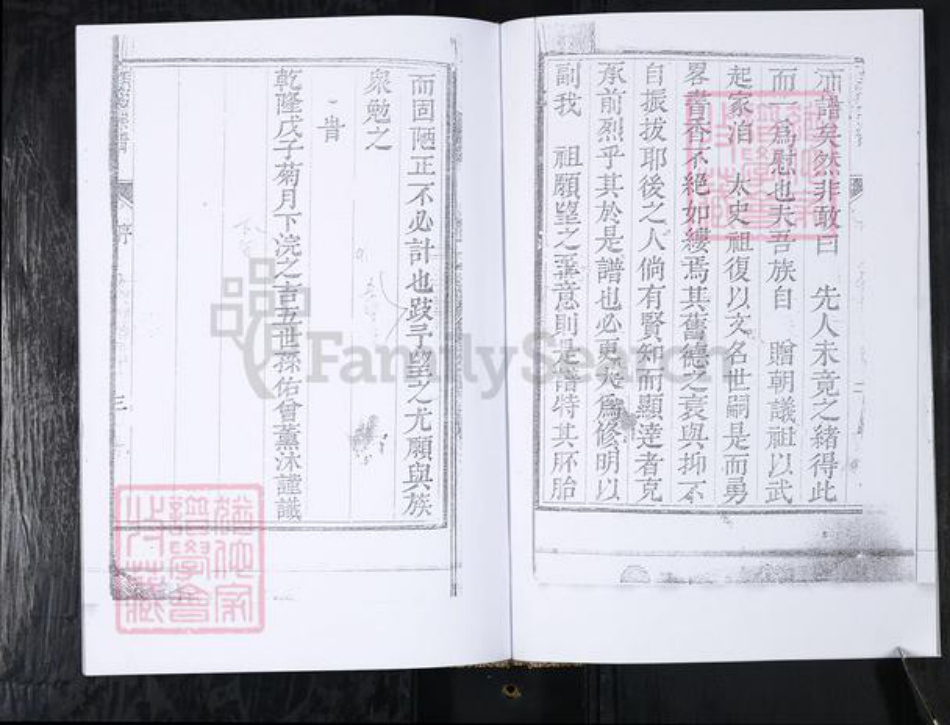 而譜矣然非敢曰 先人未竟之緒得此
而一為慰也夫吾族自 贈朝議祖以武
起家洎 太史祖復以文名世嗣是而勇
畧書香不絕如縷焉其舊德之衰與抑不
自振拔耶後之人倘有賢知而顯達者克
承前烈乎其於是譜也必更為修明以
副我 祖願望之至意則是譜特其胚胎
而固陋正不必計也跂予望之尤願與族
衆勉之
旹
乾隆戊子菊月下浣之吉五世孫佑曾薰沐謹識
序
三
FamilySearch
譜學會
收藏